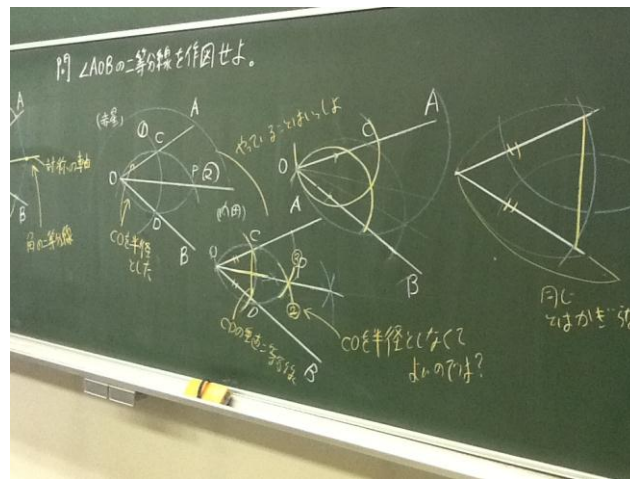 問 ∠AOBの二等分線を作図せよ。
A
対称の軸
B
角の二等分線
①
A
C
O
P
②
D
B
COを半径
とした
やっていることはいっしょ
A
C
O
B
A
C
O
P
②
D
B
CDの垂直二等分線
COを半径としなくて
よいのでは?
同じ
とはかぎらな